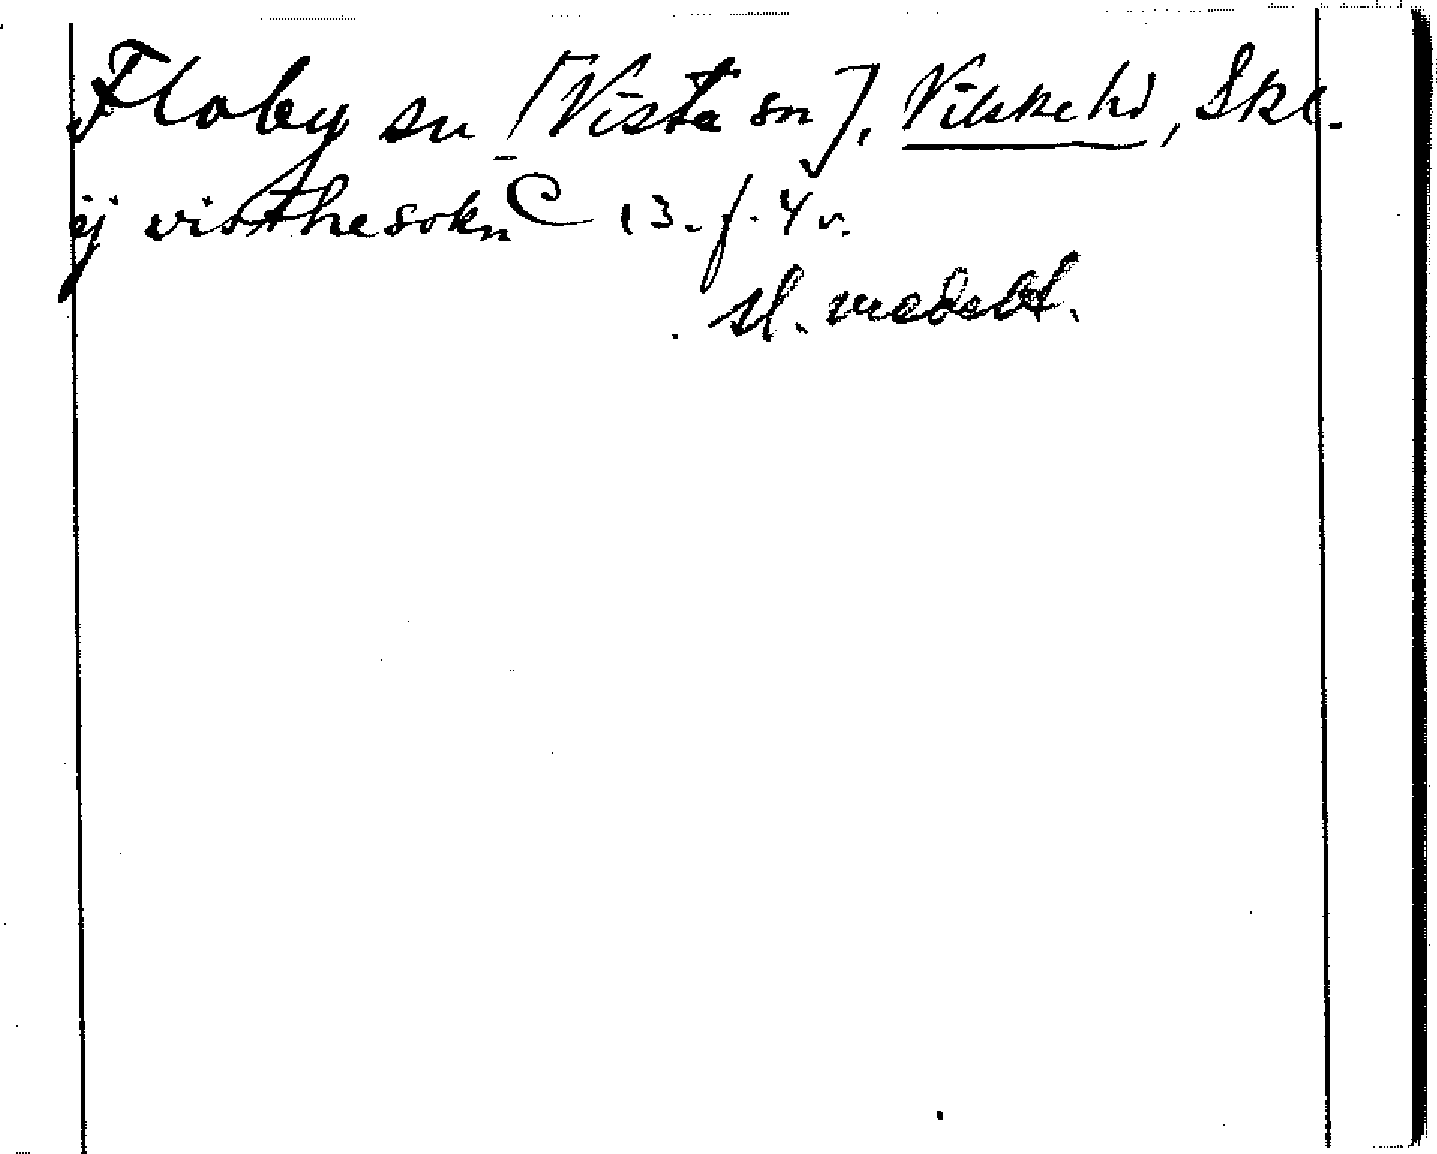 Floby sn [Vista sn], Vilske hd, Skl.
ij visthesokn C 13. f. 4 v.
sl. medelt.